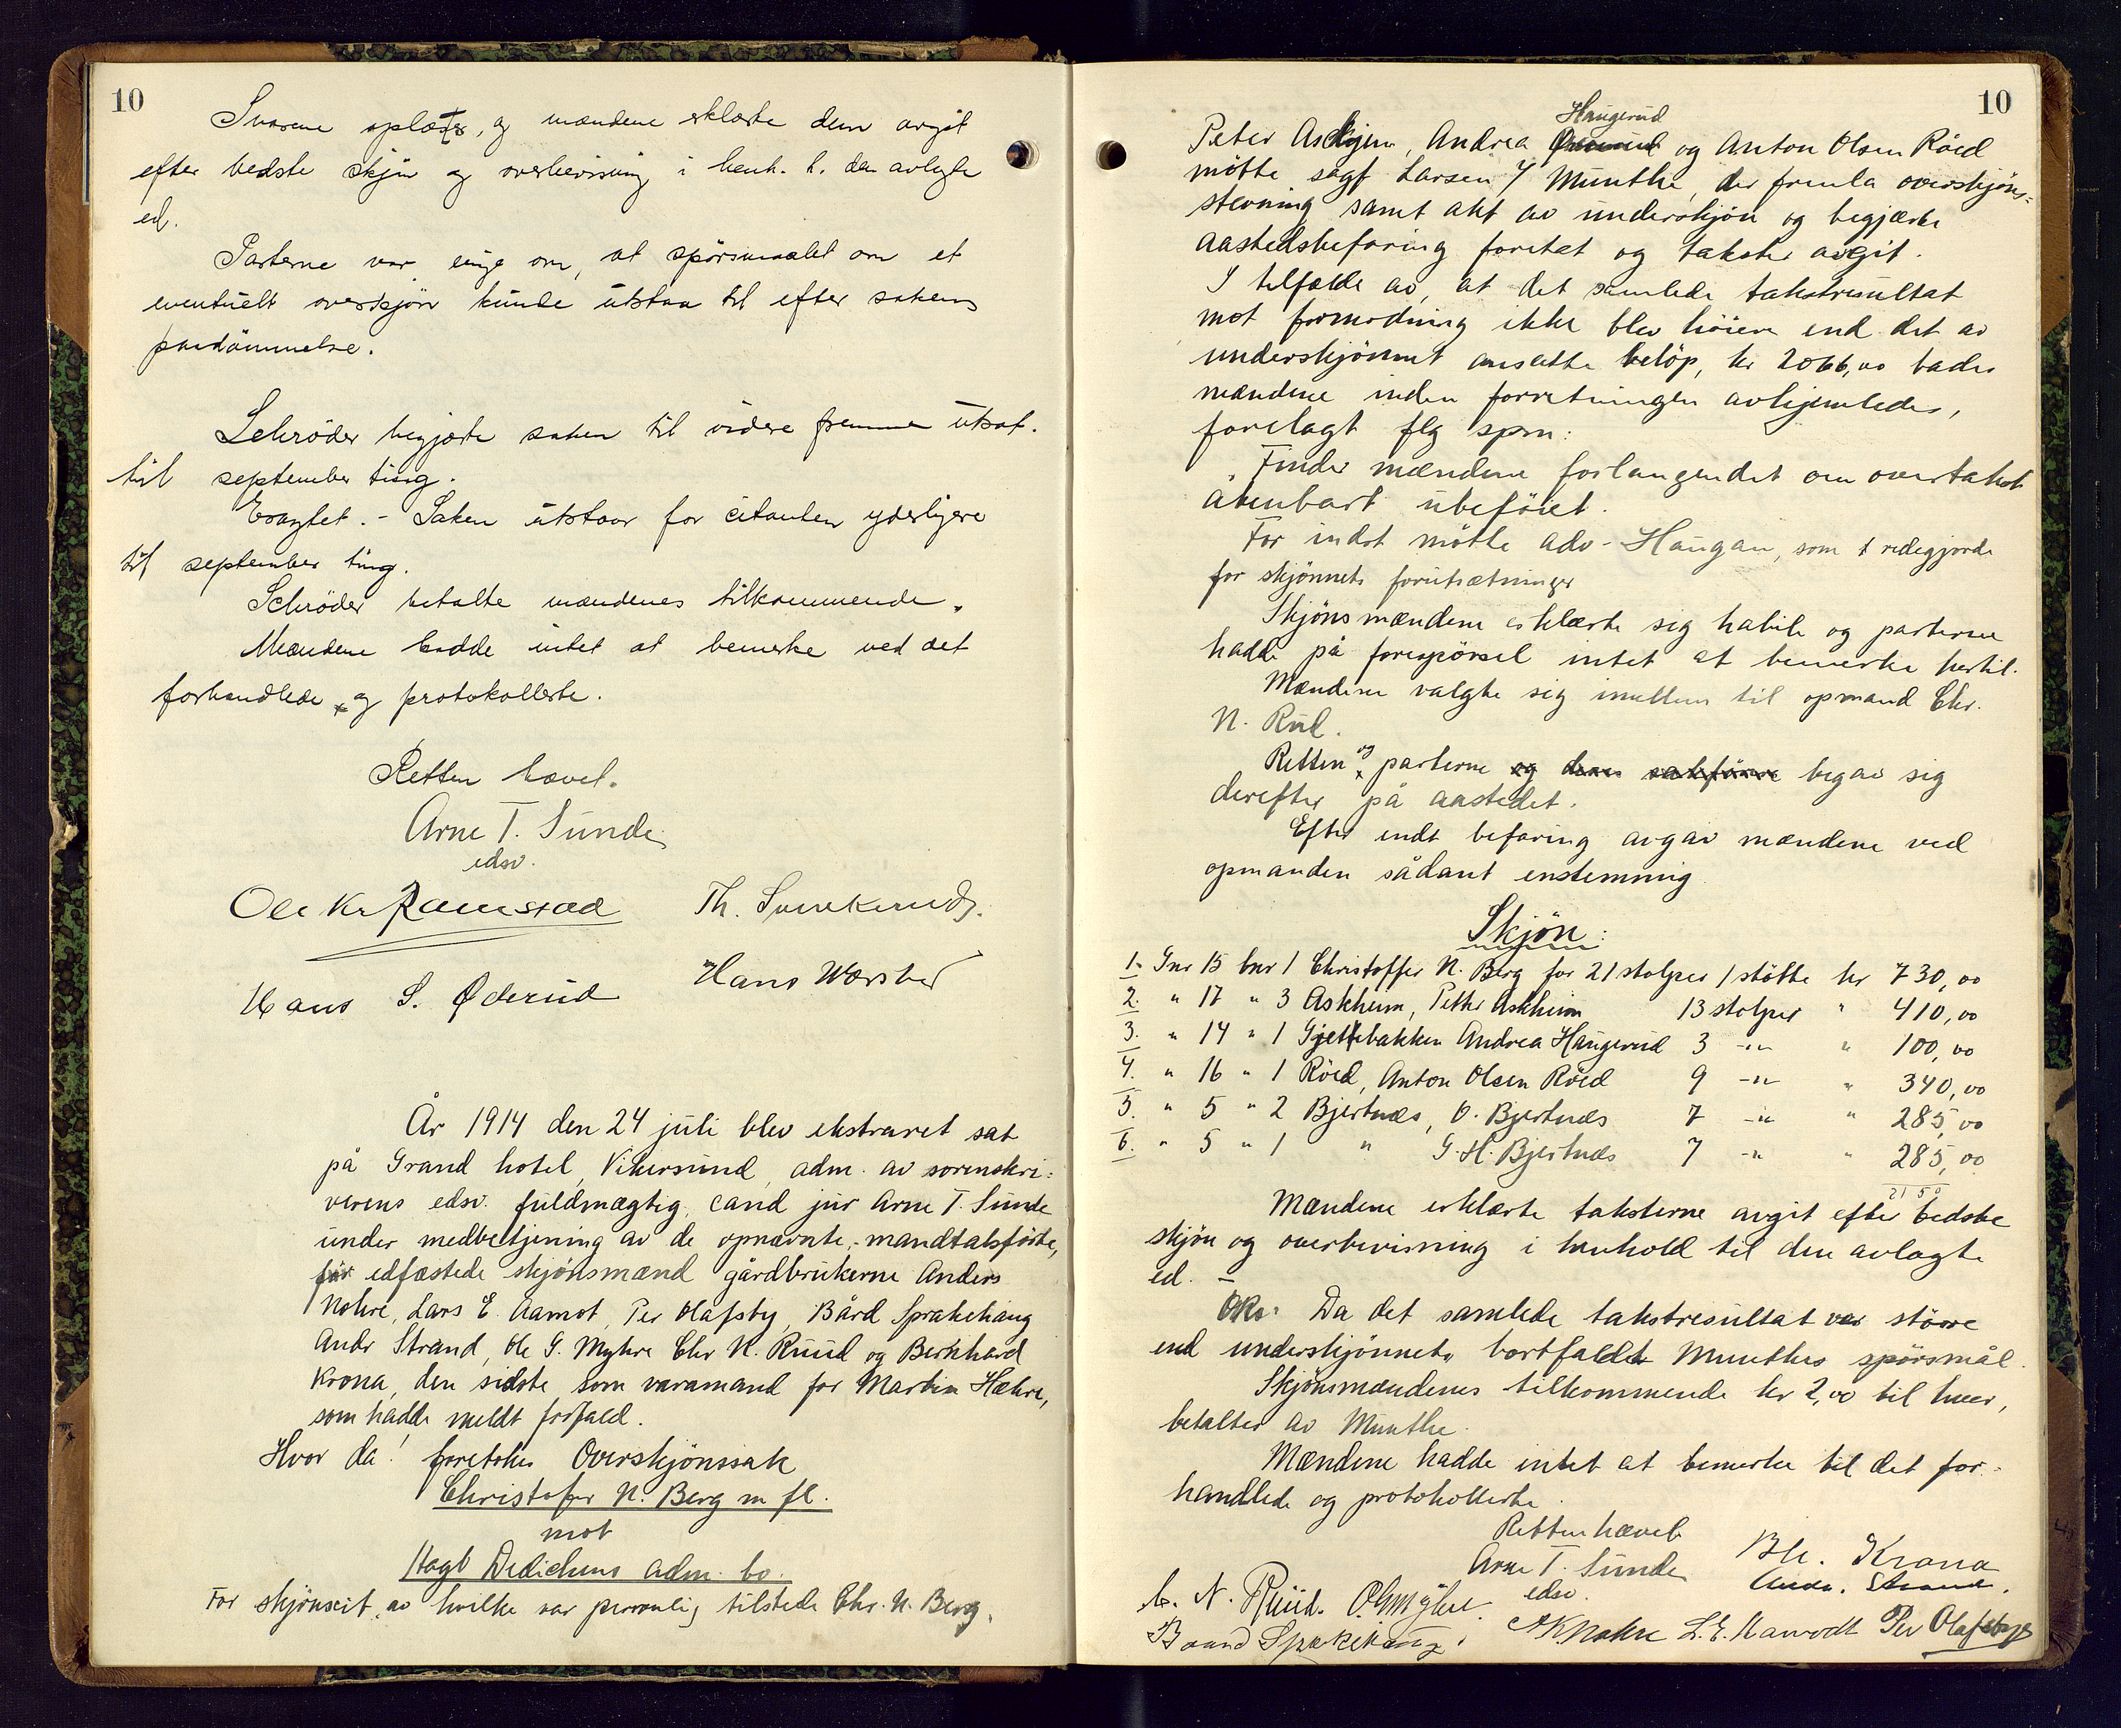 10
Svarene oplæstes, og mændene erklærte dem avgit
efter bedste skjøn og overbevisning i henh. t. den avlagte
ed.
Parterne var enige om, at spørsmaalet om et
eventuelt overskjön kunde utstaa til efter sakens
paadömmelse.
Schröder begjærte saken til videre fremme utsat
til september ting.
Eragtet. - Saken utstaar for citanten yderligere
til september ting.
Schröder betalte mændenes tilkommende.
Mændene hadde intet at bemerke ved det
forhandlede og protokollerte.
Retten hævet.
Arne T. Sunde
edsv.
Ole Kr. Ramstad Th. Svinkerud
Hans S. Øderud Hans
År 1914 den 24 juli blev ekstraret sat
på Grand hotel, Vikersund, adm. av sorenskri-
verens edsv. fuldmægtig, cand jur Arne T. Sunde
under medbetjening av de opnævnte, mandtalsförte,
før edfæstede skjønsmænd gårdbrukerne Anders
Nokre, Lars E. Aamot, Per Olafsby, Bård Sprakehaug
Andr Strand, Ole G. Myhre Chr N. Ruud og Bernhard
Krona, den sidste som varamand for Martin Hæhre,
som hadde meldt forfald.
Hvor da! foretokes Overskjönssak
Christofer N. Berg m fl.
mot
Hagb Dedichens adm. bo.
For skjönseit. av hvilke var personlig tilstede Chr. N. Berg,
10
Haugerud
Peter Askjem, Andrea og Anton Olsen Röed
mötte sagf Larsen f/ Munthe, der fremla overskjöns-
stevning samt akt av underskjön og begjærte
aastedsbefaring foretat og takster avgit.
I tilfælde av, at det samlede takstresultat
mot formodning ikke blev höiere end det av
underskjönnet ansatte belöp, kr 2066,00 bades
mændene inden forretningen avhjemledes,
forelagt flg spm:
"Finder mændene forlangendet om overtakst
åbenbart ubeföiet.
For indst mötte adv. Haugan, som redegjorde
for skjönnets forutsætninger
Skjönsmændene erklærte sig habile og parterne
hadde på forespörsel intet at bemerke hertil.
Mændene valgte sig imellem til opmand Chr.
N. Rud.
Retten og parterne og deres sakförere begav sig
derefter på aastedet.
Efter endt befaring avgav mændene ved
opmanden sådant enstemmig
Skjön:
1. Gnr 15 bnr 1 Christoffer N. Berg for 21 stolper 1 stötte kr 730,00
2. " 17 " 3 Askheim, Petter Askheim 13 stolper " 410,00
3. " 14 " 1 Gjettebakken Andrea Haugerud 3 -"- " 100,00
4. " 16 " 1 Röed, Anton Olsen Röed 9 -"- " 340,00
5. " 5 " 2 Bjertnæs, O. Bjertnæs 7 -"- " 285,00
6. " 5 " 1 " G. H. Bjertnæs 7 -"- " 285,00
2150
Mændene erklærte taksterne avgit efter bedste
skjön og overbevisning i henhold til den avlagte
ed. -
Da det samlede takstresultat var större
end underskjönnets, bortfaldt Munthes spörsmål.
Skjönsmændenes tilkommende kr 2,00 til hver,
betaltes av Munthe.
Mændene hadde intet at bemerke til det for-
handlede og protokollerte.
Retten hævet
Arne T. Sunde Bh. Krona
edsv. Andr. Strand.
C. N. Ruud. O G Myhre.
Baard Sprakehaug. A K Nokre L. E. Aamodt Per Olafsby